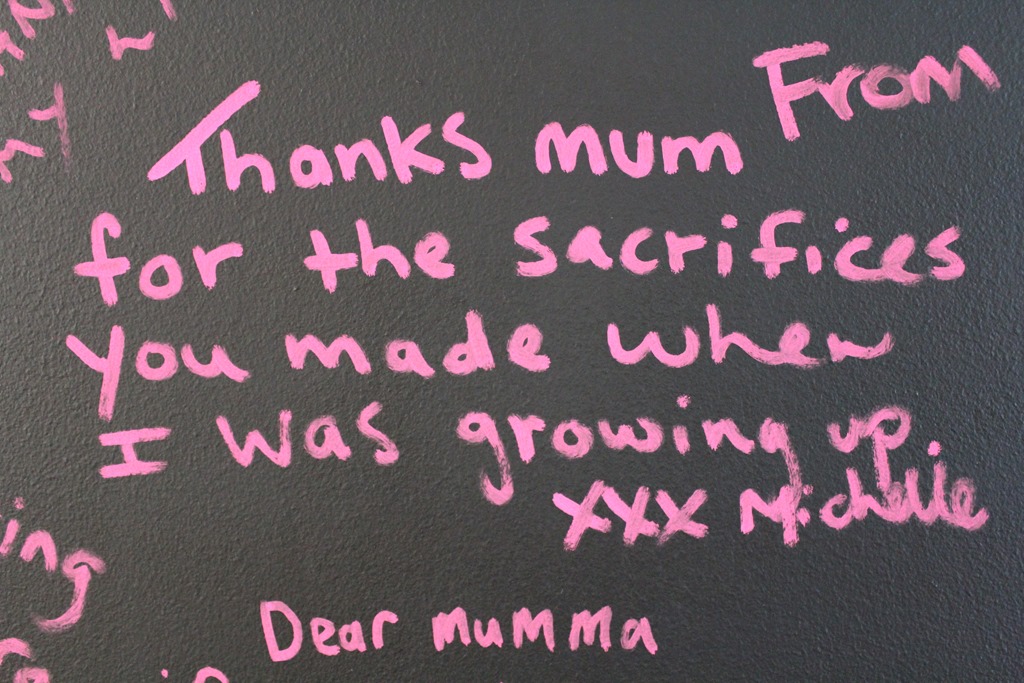 From
Thanks mum
for the sacrifices
you made when
I was growing up
xxx Michelle
Dear mumma
ing